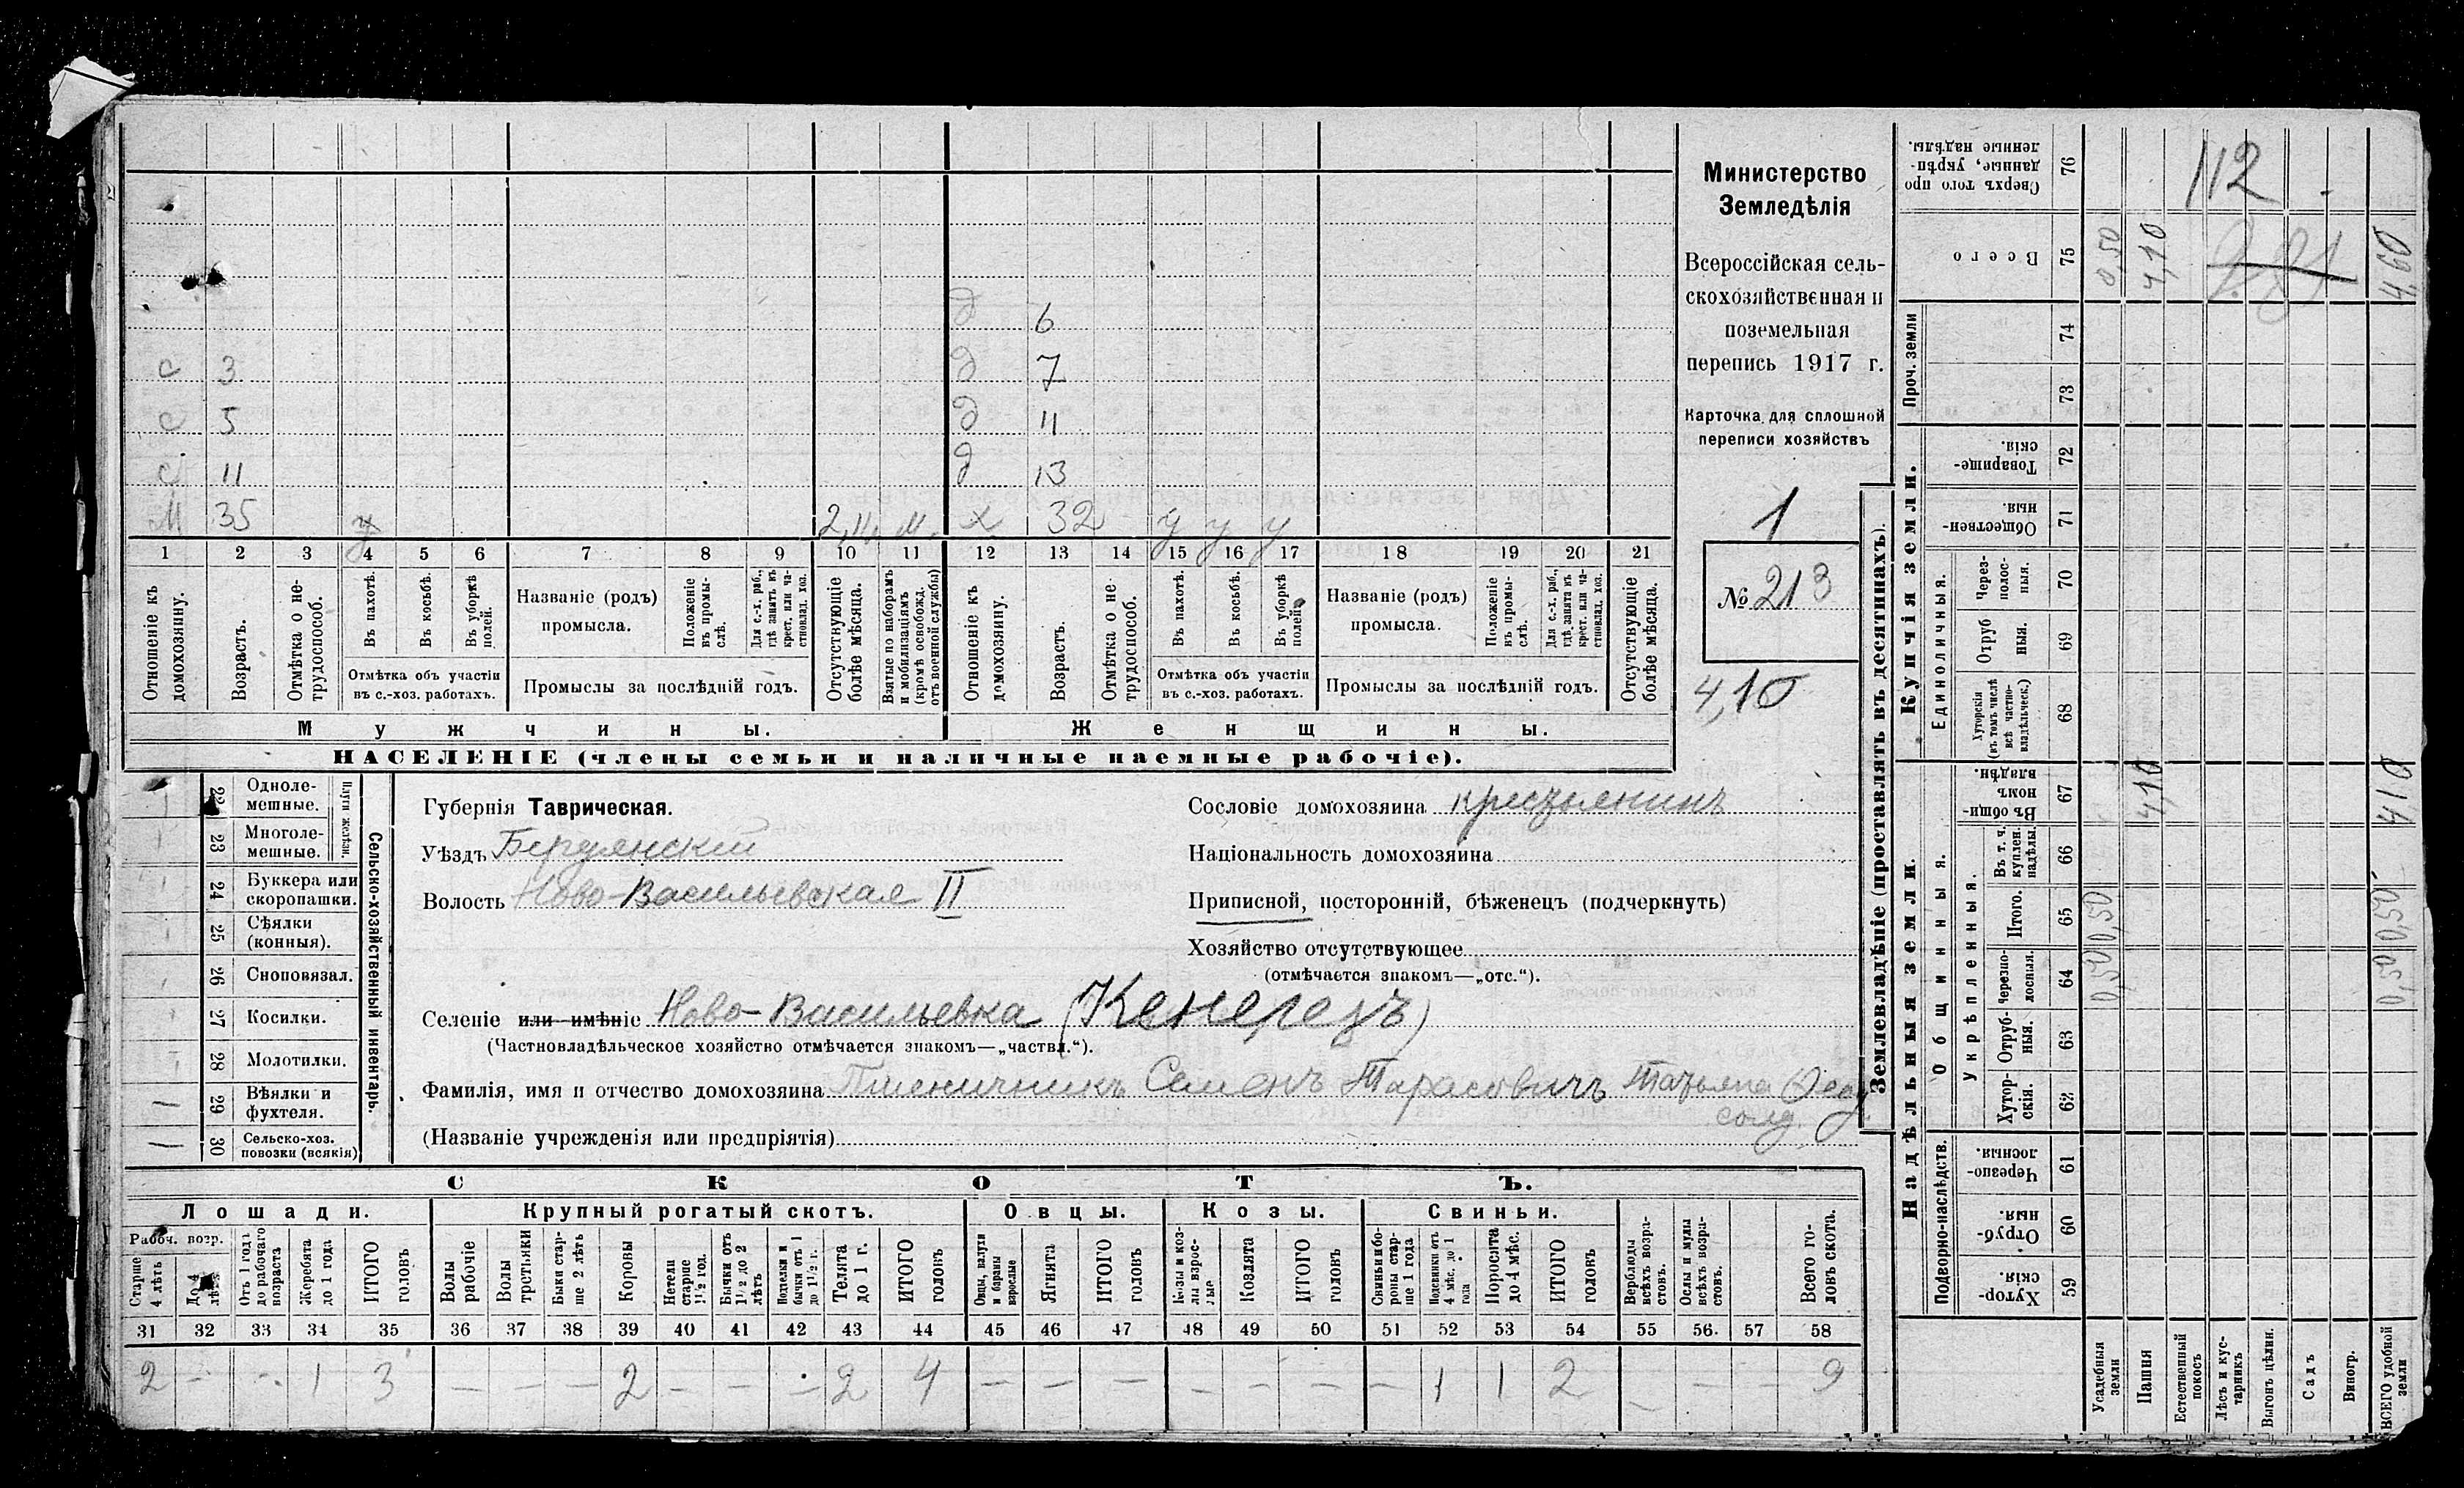 Министерство
Земледѣлія
Всероссійская сель-
скохозяйственная и
поземельная
перепись 1917 г.
Карточка для сплошной
переписи хозяйствъ
1
№ 213
4,10
д 6
с 3 д 7
с 5 д 11
с 11 д 13
М 35 у 2, м. х 32 у у у
1 2 3 4 5 6 7 8 9 10 11 12 13 14 15 16 17 18 19 20 21
Отношеніе къ домохозяину.
Возрастъ.
Отмѣтка о не-трудоспособ.
Въ пахотѣ.
Въ косьбѣ.
Въ уборкѣ полей.
Отмѣтка объ участіи
въ с.-хоз. работахъ.
Названіе (родъ)
промысла.
Положеніе въ промы-слѣ.
Для с.-х. раб., гдѣ занятъ въ крест. или ча-стновлад. хоз.
Промыслы за послѣдній годъ.
Отсутствующіе болѣе мѣсяца.
Взятые по наборамъ и мобилизаціямъ (кромѣ освобожд. отъ военной службы)
Отношеніе къ домохозяину.
Возрастъ.
Отмѣтка о не-трудоспособ.
Въ пахотѣ.
Въ косьбѣ.
Въ уборкѣ полей.
Отмѣтка объ участіи
въ с.-хоз. работахъ.
Названіе (родъ)
промысла.
Положеніе въ промы-слѣ.
Для с.-х. раб., гдѣ занята въ крест. или ча-стновлад. хоз.
Промыслы за послѣдній годъ.
Отсутствующіе болѣе мѣсяца.
Мужчины. Женщины.
НАСЕЛЕНІЕ (члены семьи и наличные наемные рабочіе).
Сельско-хозяйственный инвентарь.
Плуги желѣзн.
22 Одноле-мешные.
23 Многоле-мешные.
24 Буккера или скоропашки.
25 Сѣялки (конныя).
26 Сноповязал.
27 Косилки.
28 Молотилки.
29 Вѣялки и фухтеля.
30 Сельско-хоз. повозки (всякія)
Губернія Таврическая.
Уѣздъ Бердянскій
Волость Ново-Васильевская II
Сословіе домохозяина крестьянинъ
Національность домохозяина
Приписной, посторонній, бѣженецъ (подчеркнуть)
Хозяйство отсутствующее
(отмѣчается знакомъ—„отс.“).
Селеніе или имѣніе Ново-Васильевка (Кенерезъ)
(Частновладѣльческое хозяйство отмѣчается знакомъ—„частвл.“).
Фамилія, имя и отчество домохозяина Пшеничникъ Семенъ Тарасовичъ Татьяна
солд.
(Названіе учрежденія или предпріятія)
СКОТЪ.
Лошади. Крупный рогатый скотъ. Овцы. Козы. Свиньи.
Рабоч. возр.
Старше 4 лѣтъ
До 4 лѣтъ
Отъ 1 года до рабочаго возраста
Жеребята до 1 года
ИТОГО головъ
Волы рабочіе
Волы третьяки
Быки стар-ше 2 лѣтъ
Коровы
Нетели старше 1½ год.
Бычки отъ 1½ до 2 лѣтъ
Телята до 1 г.
ИТОГО головъ
Ягнята
ИТОГО головъ
Козлята
ИТОГО головъ
Свиньи и бо-ровы стар-ше 1 года
Подсвинки отъ 4 мѣс. до 1 года
Поросята до 4 мѣс.
ИТОГО головъ
Верблюды всѣхъ возра-стовъ.
Ослы и мулы всѣхъ возра-стовъ.
Всего го-ловъ скота.
31 32 33 34 35 36 37 38 39 40 41 42 43 44 45 46 47 48 49 50 51 52 53 54 55 56. 57 58
2 – – 1 3 – – – 2 – – – 2 4 – – – – – – – 1 1 2 – – – 9
Землевладѣніе (проставлять въ десятинахъ).
Купчія земли.
Надѣльныя земли.
Сверхъ того про данные, укрѣп-ленные надѣлы. 76 112
Всего 75 0,50 4,10 4,60
Проч. земли 74
73
Товарище-скія. 72
Обществен-ныя. 71
Единоличныя.
Через-полос-ныя. 70
Отруб ныя. 69
Хуторскія (въ томъ числѣ всѣ частно-владѣльческ.) 68
Общинныя.
Въ общи номъ владѣн. 67 4,10 4,10
Укрѣпленныя.
Въ т. ч. куплен. надѣлы. 66
Итого. 65 0,50 0,50
Черезпо-лосныя. 64 0,50 0,50
Отруб-ныя. 63
Хутор-скія. 62
Подворно-наслѣдств.
Черезпо-лосныя. 61
Отруб-ныя. 60
Хутор-скія. 59
Усадебныя земли
Пашня
Естественный покосъ
Лѣсъ и кус-тарникъ
Выгонъ цѣлин.
Садъ
Виногр.
ВСЕГО удобной земли